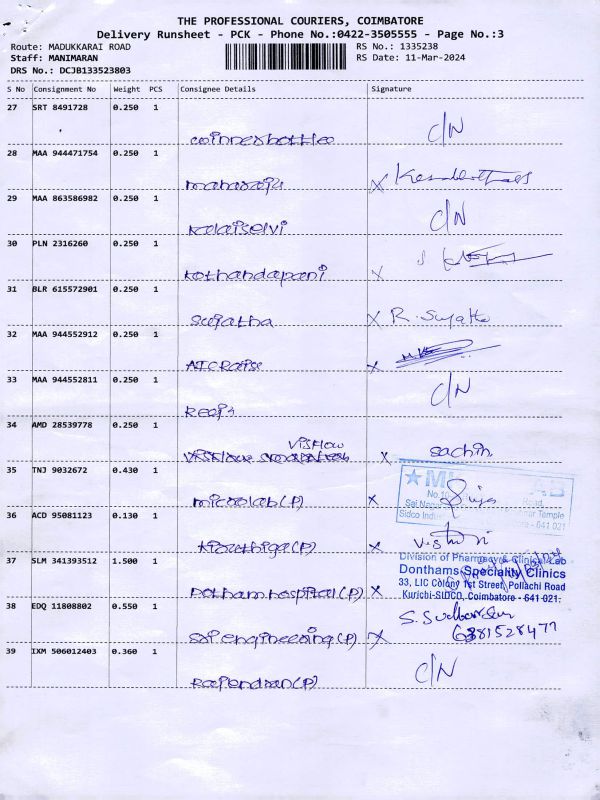 THE PROFESSIONAL COURIERS, COIMBATORE
Delivery Runsheet - PCK - Phone No.:0422-3505555 - Page No.:3
Route: MADUKKARAI ROAD
RS No.: 1335238
Staff: MANIMARAN
RS Date: 11-Mar-2024
DRS No.: DCJB133523803
S No Consignment No Weight PCS Consignee Details Signature
27 SRT 8491728 0.250 1
C/N
28 MAA 944471754 0.250 1
maharaja X
29 MAA 863586982 0.250 1
kalaiselvi C/N
30 PLN 2316260 0.250 1
kothandapani X
31 BLR 615572901 0.250 1
sujatha X R. Sujatha
32 MAA 944552912 0.250 1
X
33 MAA 944552811 0.250 1
C/N
34 AMD 28539778 0.250 1
Visflow
X sachin
35 TNJ 9032672 0.430 1
microlab(P) X
No.10
Road,
Sai Nagar
Temple
Sidco Indus
ore - 641 021
36 ACD 95081123 0.130 1
X
37 SLM 341393512 1.500 1
Division of Pharmacy & Clinical Lab
Donthams Speciality Clinics
33, LIC Colony 1st Street, Pollachi Road
Kurichi-SIDCO, Coimbatore - 641 021.
Dotham hospital(P) X
38 EDQ 11808802 0.550 1
Sri engineering(P) X
6381528477
39 IXM 506012403 0.360 1
Rajendran(P) C/N